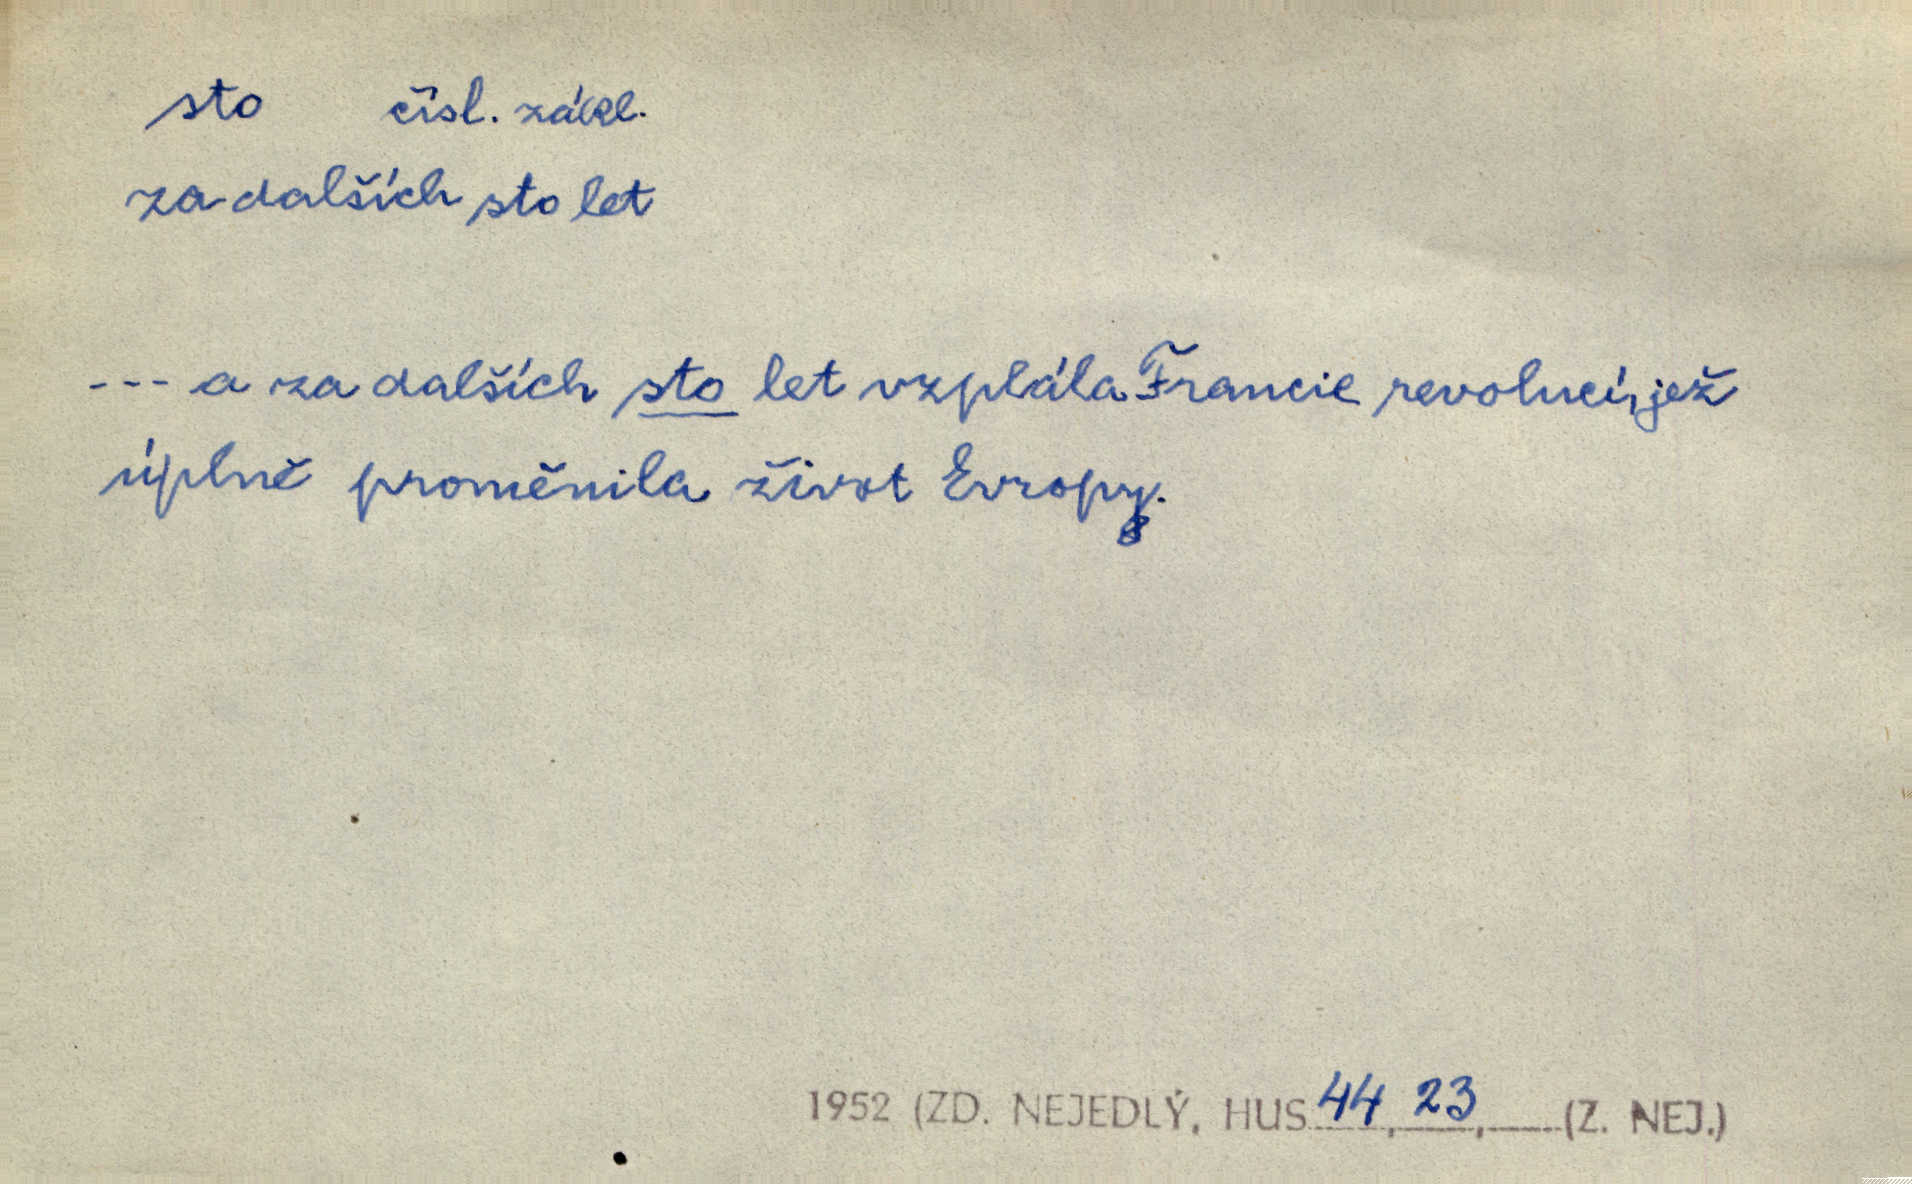 sto čísl. zákl.
za dalších sto let
--- a za dalších sto let vzplála Francie revolucí, jež
úplně proměnila život Evropy.
1952 (ZD. NEJEDLÝ, HUS 44, 23, (Z. NEJ.)